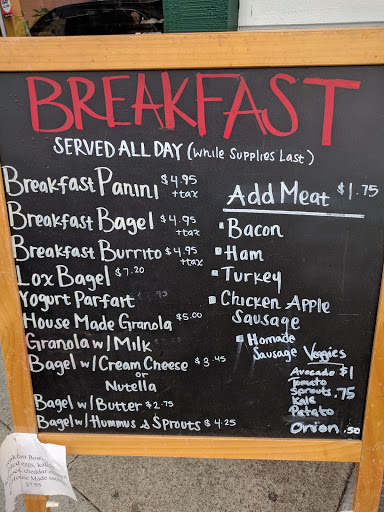 BREAKFAST
SERVED ALL DAY (While Supplies Last)
Breakfast Panini $4.95 +tax
Breakfast Bagel $4.95 +tax
Breakfast Burrito $4.95 +tax
Lox Bagel $7.20
Yogurt Parfart
House Made Granola $5.00
Granola w/ Milk
Bagel w/ Cream Cheese $3.45
or
Nutella
Bagel w/ Butter $2.75
Bagel w/ Hummus & Sprouts $4.25
Add Meat $1.75
Bacon
Ham
Turkey
Chicken Apple
Sausage
Homade
Sausage Veggies
Avocado $1
Tomato
Sprouts .75
Kale
Potato
Onion .50
eggs,
cheddar
House Made